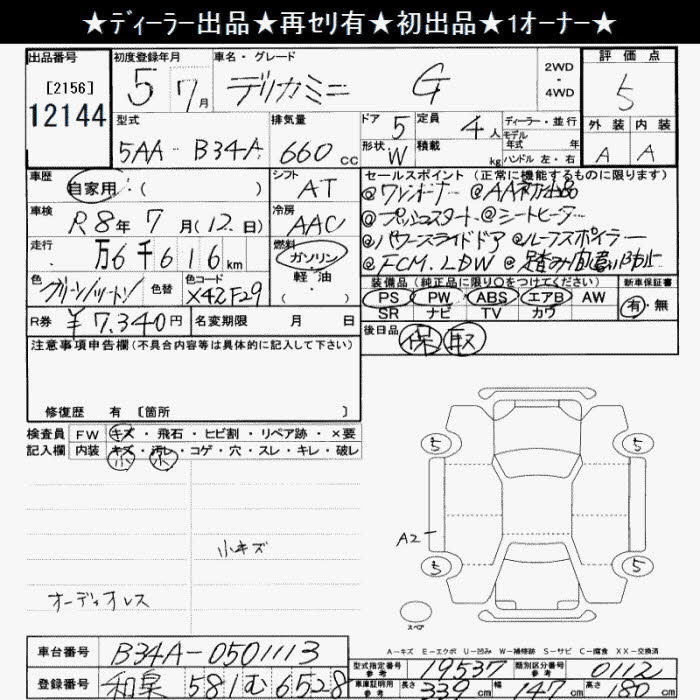 ★ディーラー出品★再セリ有★初出品★1オーナー★
出品番号
[2156]
12144
初度登録年月
5 7月
車名・グレード
デリカミニ G
2WD
・
4WD
評価点
5
型式
5AA - B34A
排気量
660 cc
ドア 5
定員 4人
ディーラー・並行
モデル
年式 年
ハンドル 左・右
形状 W
積載 kg
外装 内装
A A
車歴
自家用・( )
シフト
AT
セールスポイント (正常に機能するものに限ります)
@ワンオーナー @AA初出品
@プッシュスタート @シートヒーター
@パワースライドドア @ルーフスポイラー
@FCM.LDW @踏み間違い防止
車検
R8年7月(12日)
冷房
AAC
走行
万6千616km
燃料
ガソリン・
軽・油
・( )
色
グリーン/ツートン
色替
色コード
X42F29
装備品 (純正品に限り○をつけてください)
PS PW ABS エアB AW
SR ナビ TV カワ
新車保証書
有・無
R券 ¥7,340円
名変期限 月 日
後日品 保 取
注意事項申告欄(不具合内容等は具体的に記入して下さい)
修復歴 有 〔箇所 〕
検査員 FW キズ・飛石・ヒビ割・リペア跡・×要
記入欄 内装 キズ・汚レ・コゲ・穴・スレ・キレ・破レ
小 小
小キズ
オーディオレス
5 5
A2
5 5
スペア
A-キズ E-エクボ U-凹み W-補修跡 S-サビ C-腐食 XX-交換済
車台番号 B34A-0501113
登録番号 和泉 581 む 6528
型式指定番号 参考 19537
類別区分番号 参考 0112
車庫証明用 参考 長さ 339cm 幅 147cm 高さ 180cm